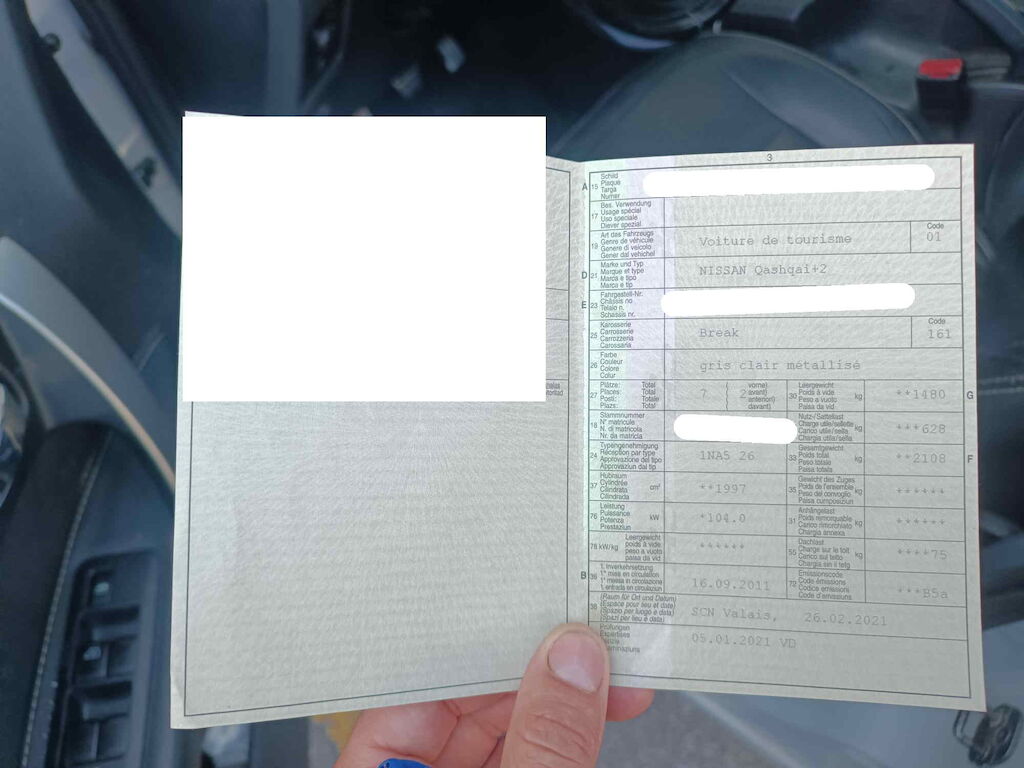 3
A 15 Schild
Plaque
Targa
Numer
17 Bes. Verwendung
Usage spécial
Uso speciale
Diever spezial
19 Art des Fahrzeugs
Genre de véhicule
Genere di veicolo
Gener dal vehichel
Voiture de tourisme
Code
01
D 21 Marke und Typ
Marque et type
Marca e tipo
Marca e tip
NISSAN Qashqai+2
E 23 Fahrgestell-Nr.
Châssis no
Telaio n.
Schassis nr.
25 Karosserie
Carrosserie
Carrozzeria
Carossaria
Break
Code
161
26 Farbe
Couleur
Colore
Colur
gris clair métallisé
27 Plätze: Total
Places: Total
Posti: Totale
Plazs: Total
7
( vorne)
( 2 avant)
( anteriori)
( davant)
30 Leergewicht
Poids à vide
Peso a vuoto
Paisa da vid
kg
**1480
G
18 Stammnummer
N° matricule
N. di matricola
Nr. da matricla
Nutz-/Sattellast
Charge utile/sellette
Carico utile/sella
Chargia utila/sella
kg
***628
24 Typengenehmigung
Réception par type
Approvazione del tipo
Approvaziun dal tip
1NA5 26
33 Gesamtgewicht
Poids total
Peso totale
Paisa totala
kg
**2108
F
37 Hubraum
Cylindrée
Cilindrata
Cilindrada
cm³
**1997
35 Gewicht des Zuges
Poids de l'ensemble
Peso del convoglio
Paisa cumposiziun
kg
******
76 Leistung
Puissance
Potenza
Prestaziun
kW
*104.0
31 Anhängelast
Poids remorquable
Carico rimorchiato
Chargia annexa
kg
******
78 kW/kg
Leergewicht
poids à vide
peso a vuoto
paisa da vid
******
55 Dachlast
Charge sur le toit
Carico sul tetto
Chargia sin il tetg
kg
****75
B 36 1. Inverkehrsetzung
1re mise en circulation
1a messa in circolazione
1. entrada en circulaziun
16.09.2011
72 Emissionscode
Code émissions
Codice emissioni
Code d'emissiuns
***B5a
38 (Raum für Ort und Datum)
(Espace pour lieu et date)
(Spazio per luogo e data)
(Spazi per lieu e data)
SCN Valais, 26.02.2021
Prüfungen
Expertises
05.01.2021 VD